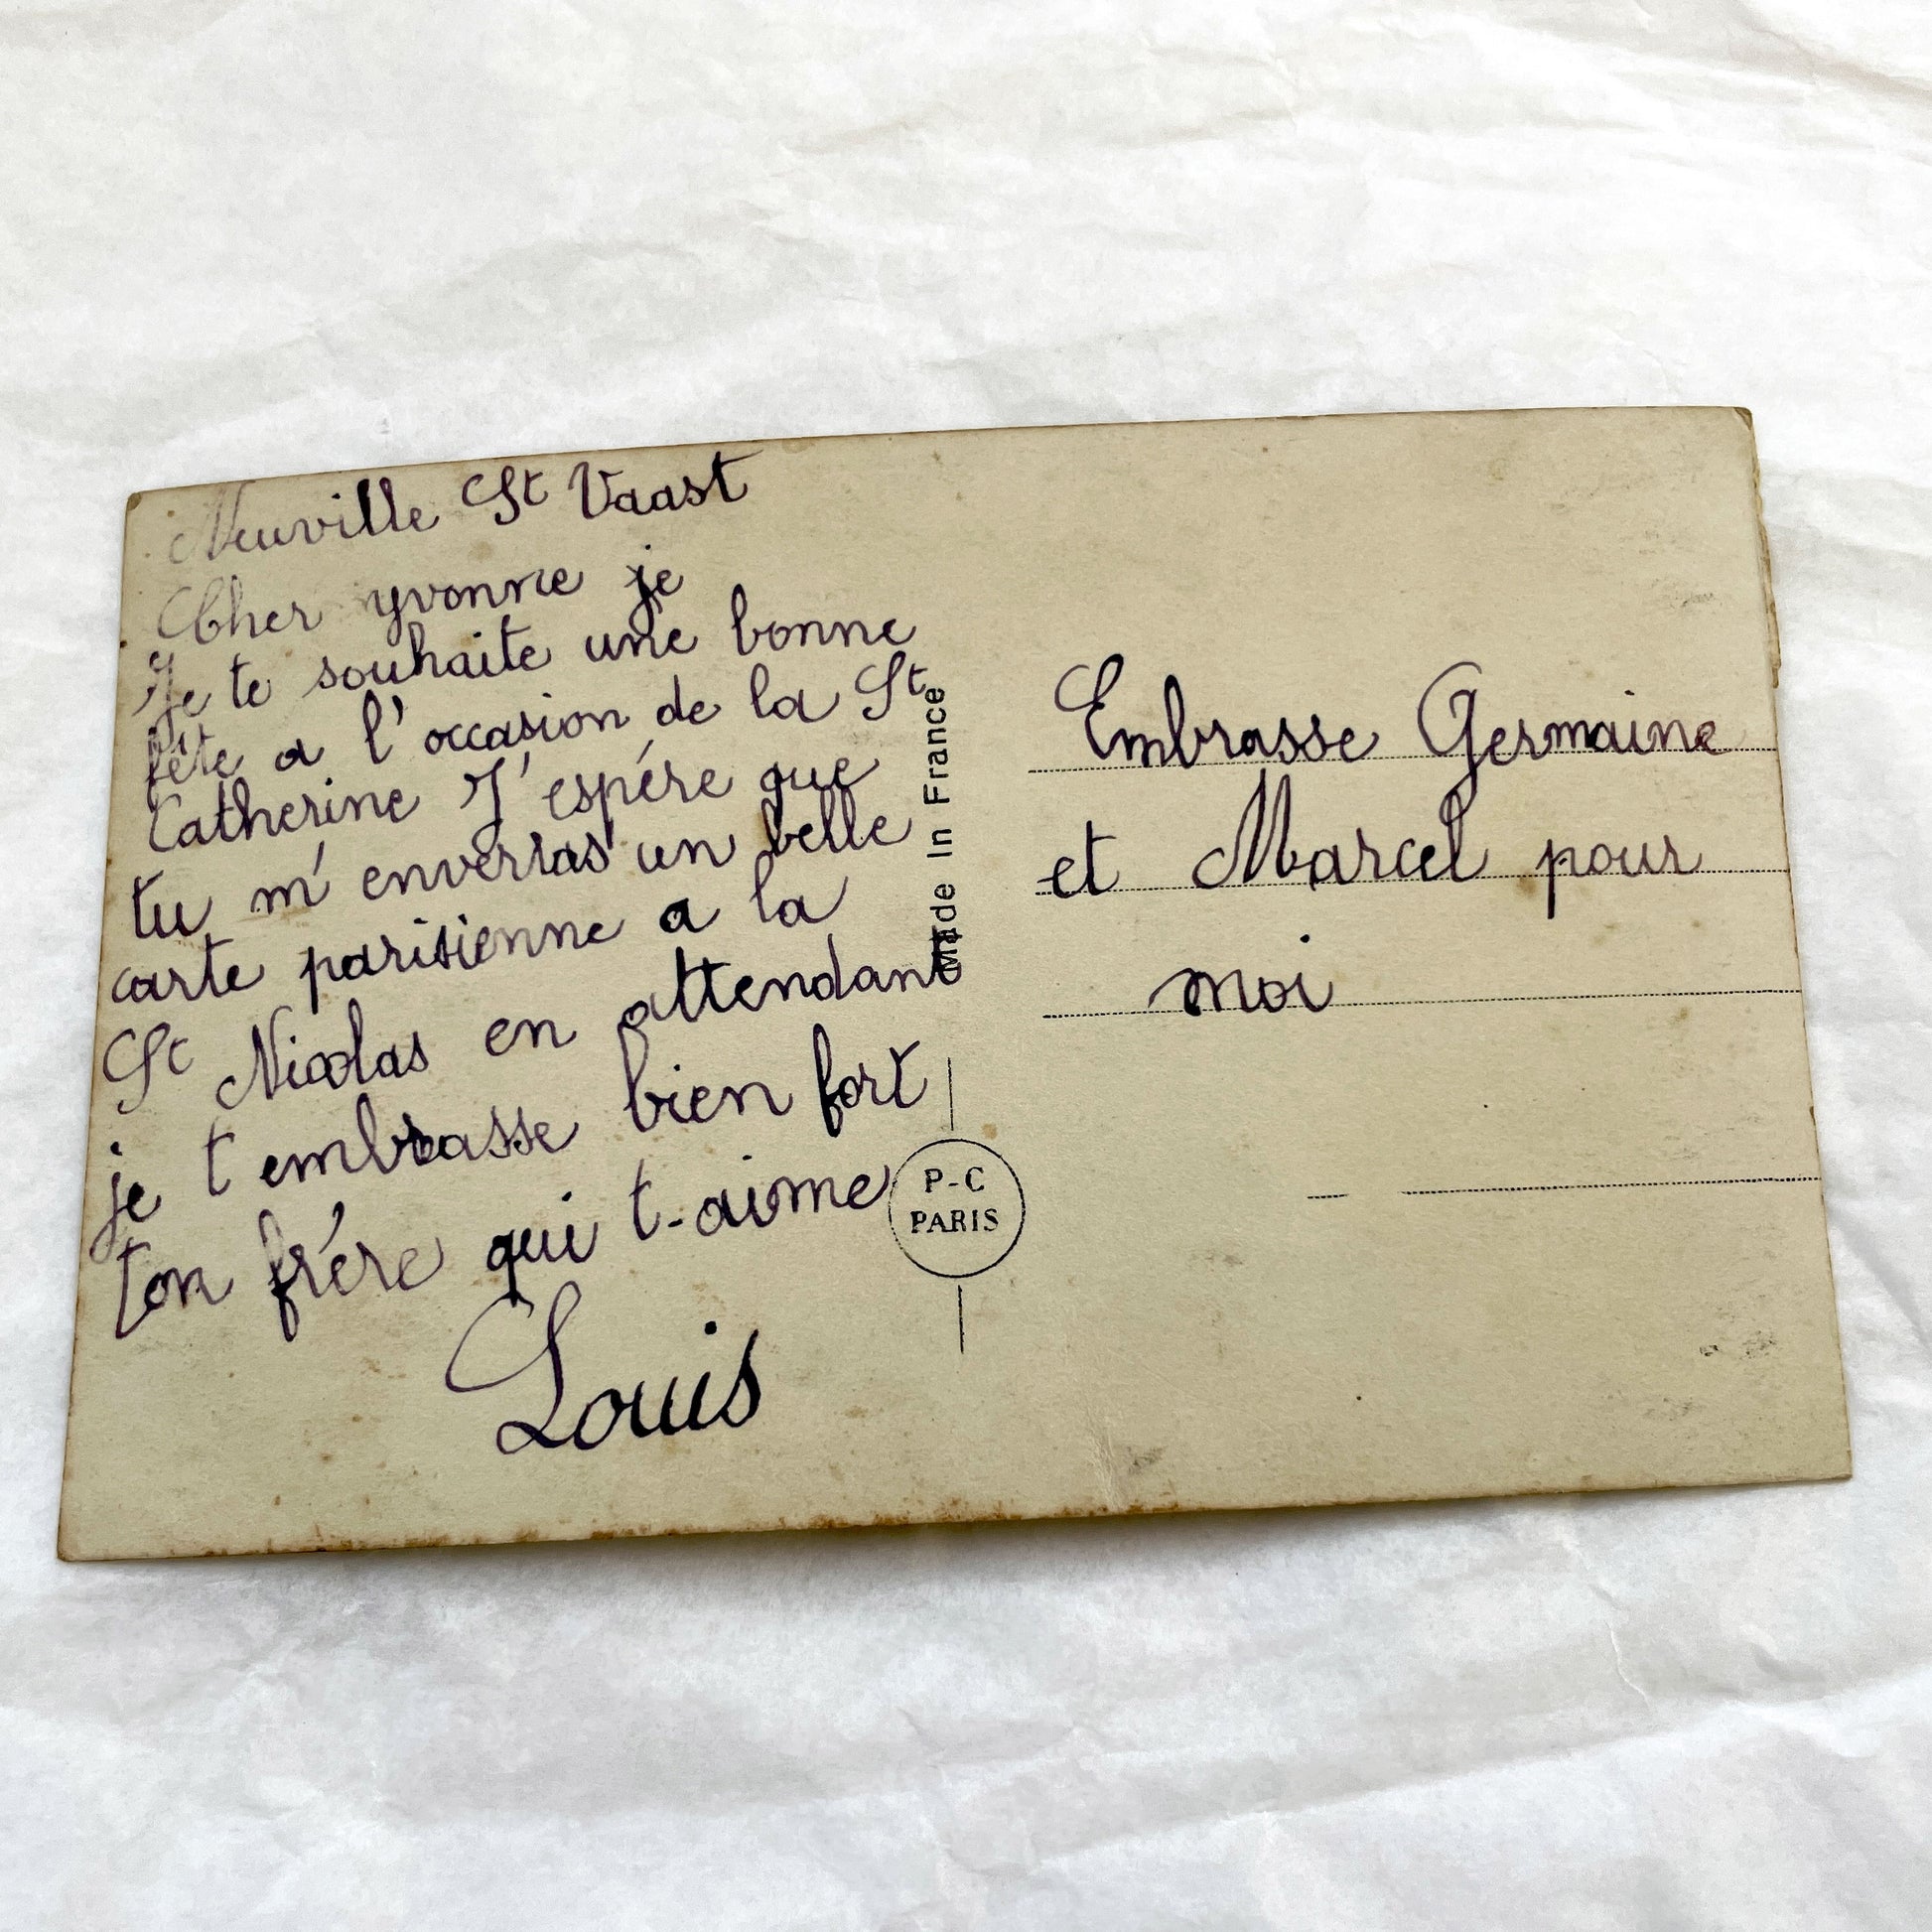 Neuville St Vaast
Cher yvonne je
Je te souhaite une bonne
fête a l'occasion de la St
Catherine J'espére que
tu m'enverras un belle
carte parisienne a la
St Nicolas en attendant
je t embrasse bien fort
ton frére qui t-aime
Louis
Made In France
P-C
PARIS
Embrasse Germaine
et Marcel pour
moi